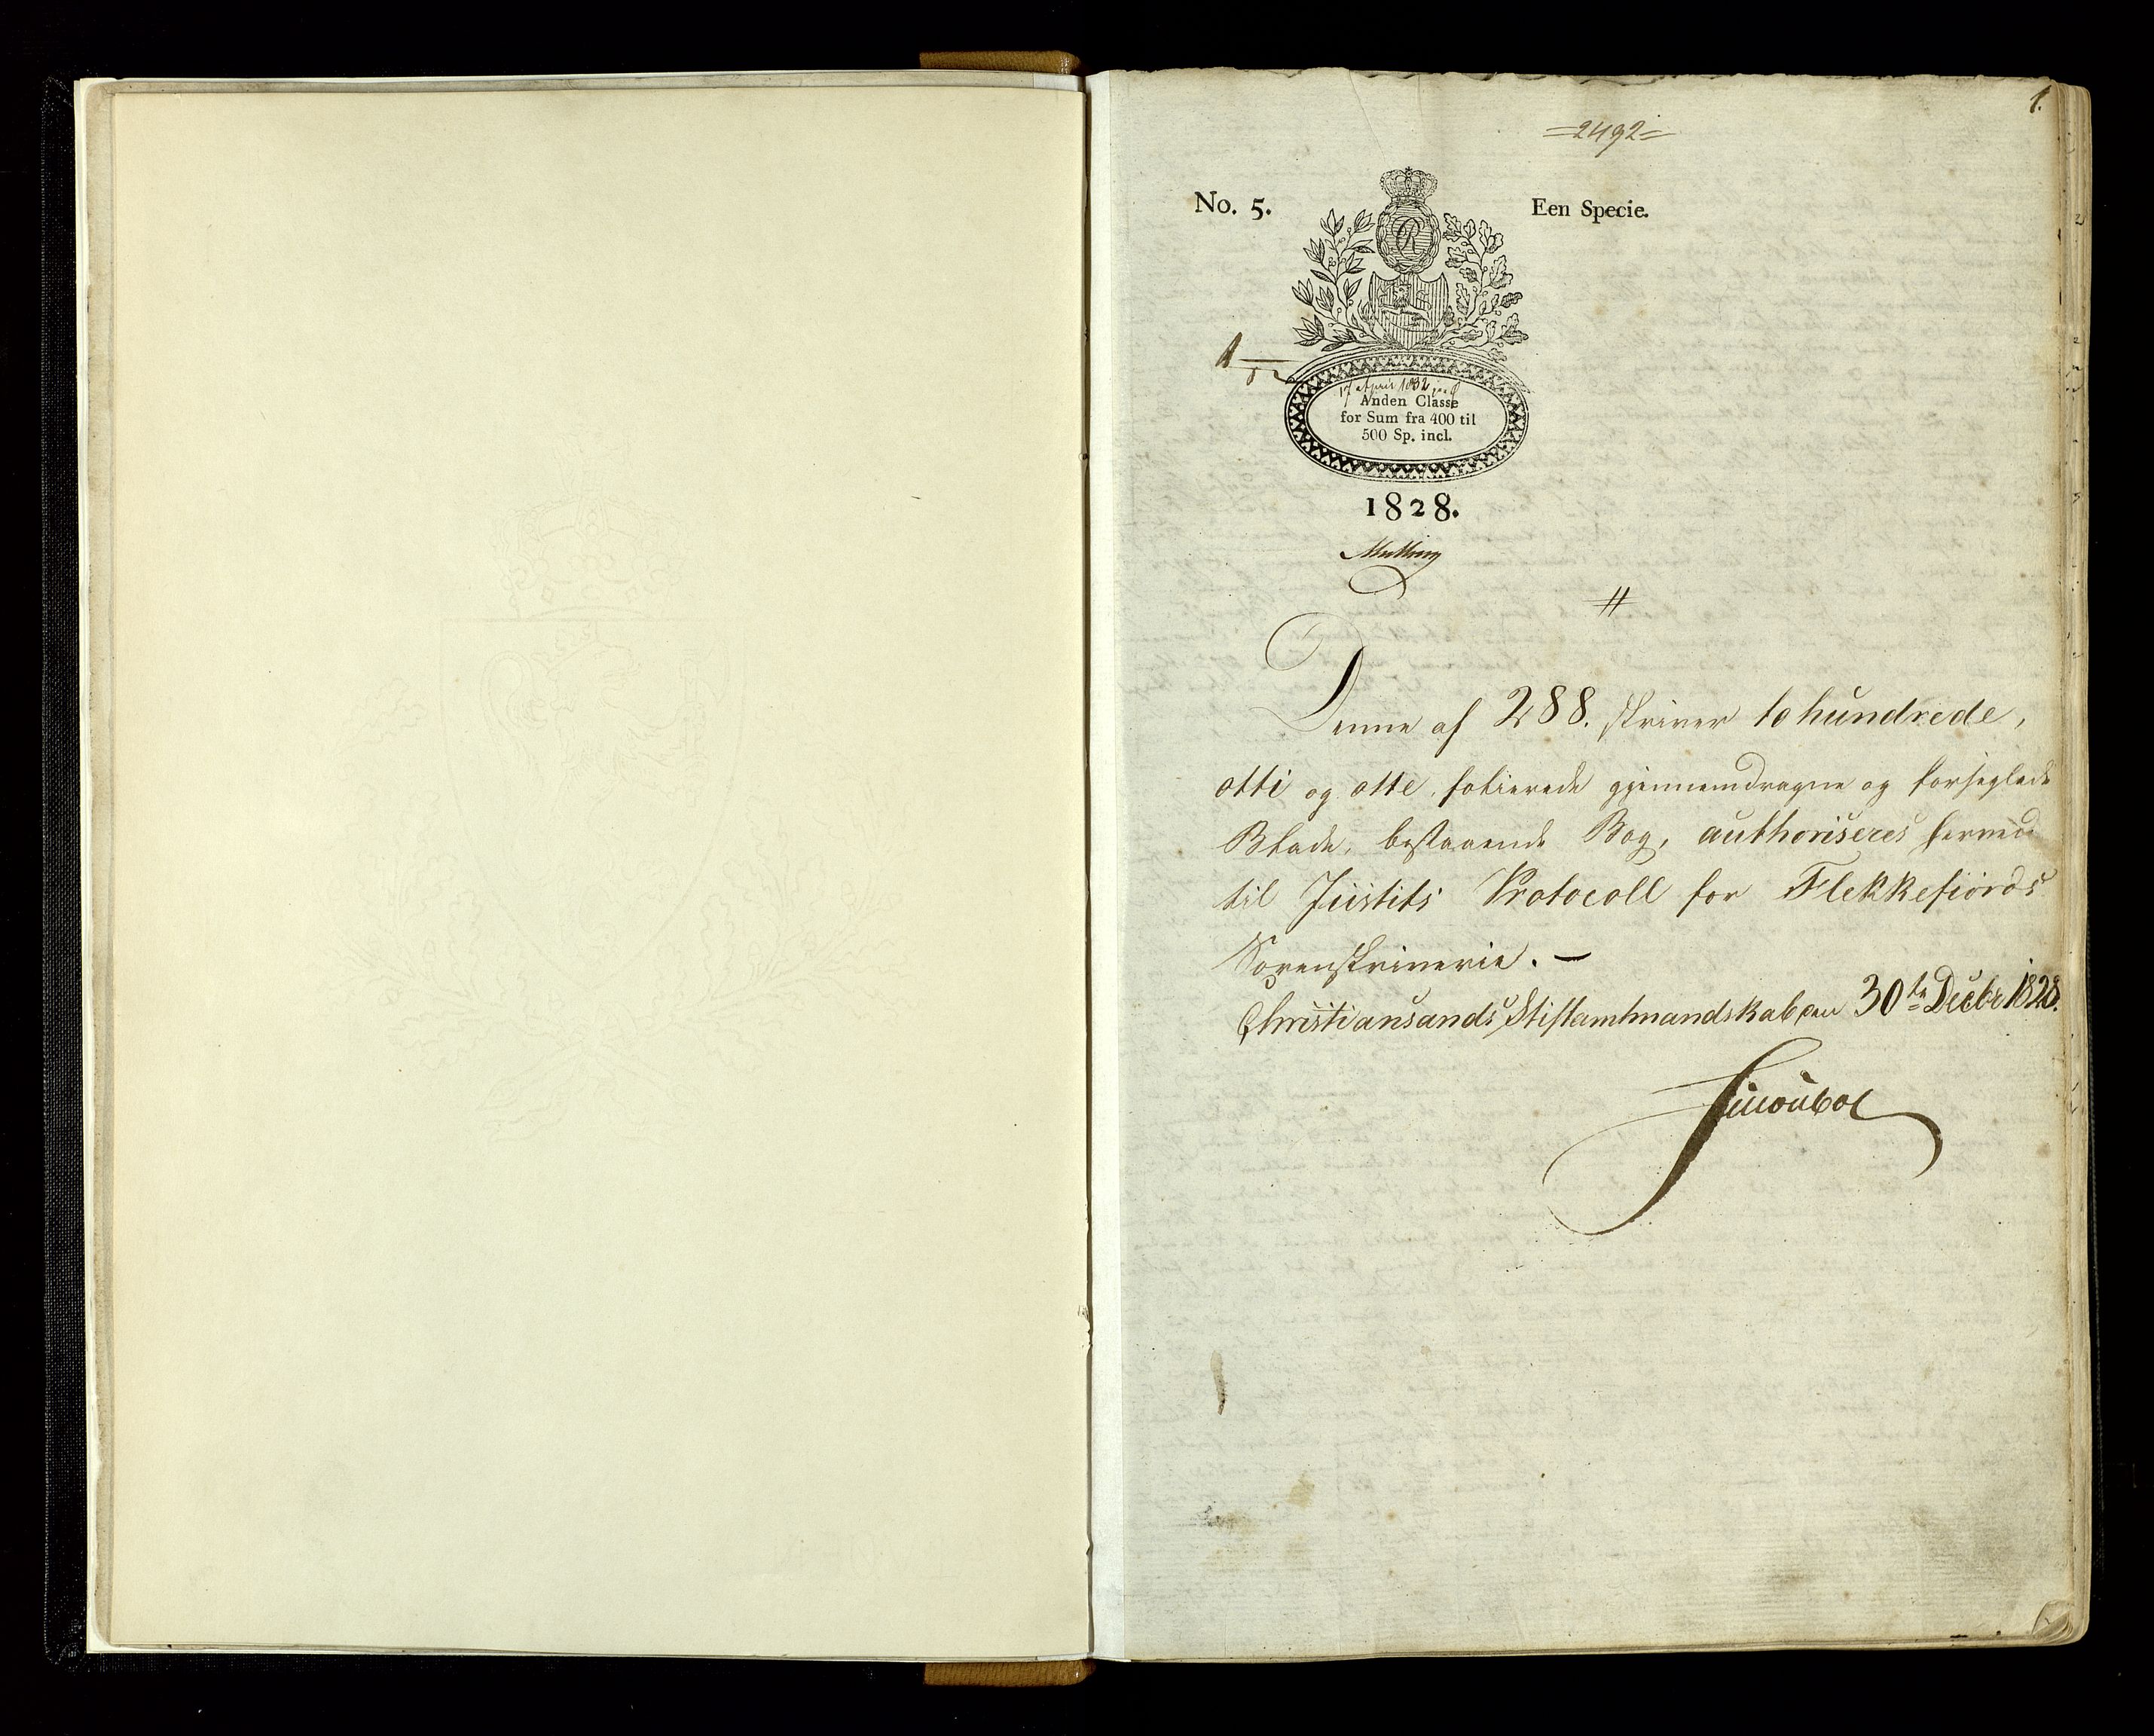 1.
=2492=
No. 5.
Een Specie.
R
17 April 1832
Anden Classe
for Sum fra 400 til
500 Sp. incl.
1828.
Denne af 288. skriver to hundrede,
otti og otte, folierede gjennemdragne og forseglede
Blade, bestaaende Bog, authoriseres herved
til Justits Protocoll for Flekkefiords
Sorenskriverie. —
Christiansands Stiftamtmandskab den 30te Decbr 1828.